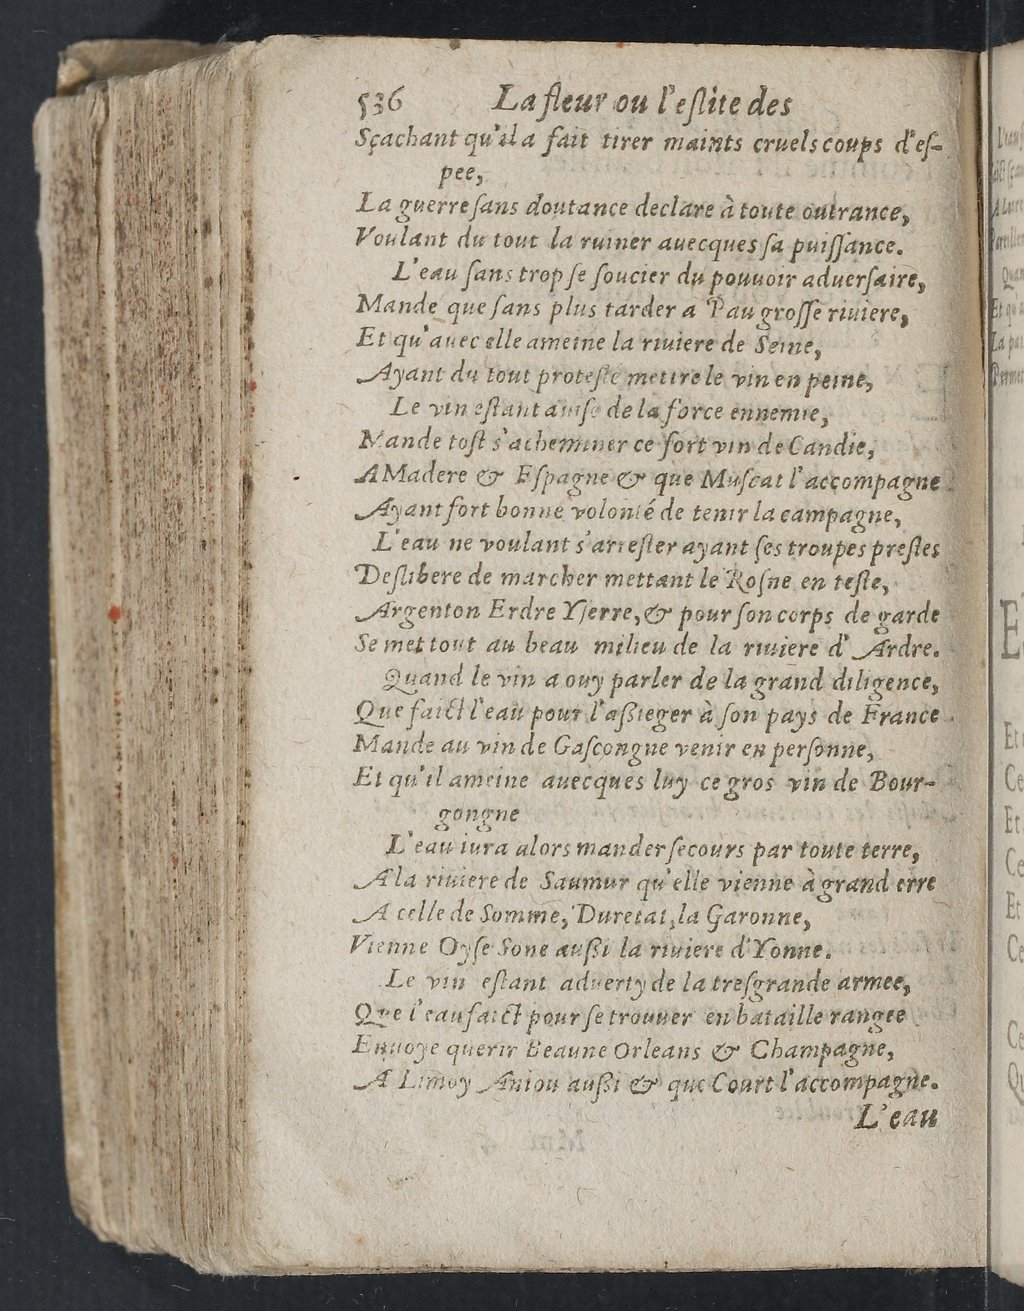 536 La fleur ou l'eſlite des
Sçachant qu'il a fait tirer maints cruels coups d'eſ-
pee,
La guerre ſans doutance declare à toute outrance,
Voulant du tout la ruiner auecques ſa puiſſance.
L'eau ſans trop ſe ſoucier du pouuoir aduerſaire,
Mande que ſans plus tarder a Pau groſſe riuiere,
Et qu'auec elle ameine la riuiere de Seine,
Ayant du tout proteſté mettre le vin en peine,
Le vin eſtant auiſé de la force ennemie,
Mande toſt s'acheminer ce fort vin de Candie,
A Madere & Eſpagne & que Muſcat l'accompagne
Ayant fort bonne volonté de tenir la campagne,
L'eau ne voulant s'arreſter ayant ſes troupes preſtes
Deſlibere de marcher mettant le Roſne en teſte,
Argenton Erdre Yſerre, & pour ſon corps de garde
Se met tout au beau milieu de la riuiere d'Ardre.
Quand le vin a ouy parler de la grand diligence,
Que faict l'eau pour l'aßieger à ſon pays de France.
Mande au vin de Gaſcongne venir en perſonne,
Et qu'il ameine auecques luy ce gros vin de Bour-
gongne
L'eau iura alors mander ſecours par toute terre,
A la riuiere de Saumur qu'elle vienne à grand erre
A celle de Somme, Duretal, la Garonne,
Vienne Oyſe Sone außi la riuiere d'Yonne.
Le vin eſtant aduerty de la treſgrande armee,
Que l'eau faict pour ſe trouuer en bataille rangee
Enuoye querir Beaune Orleans & Champagne,
A Limoy Aniou außi & que Court l'accompagne.
L'eau